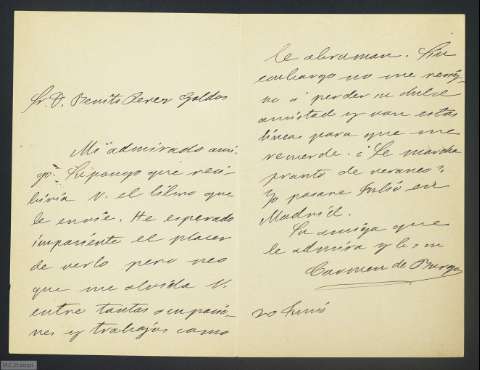 Sr. D. Benito Perez Galdos
Mi admirado ami-
go: Supongo que reci-
biria V. el libro que
le envie. He esperado
impaciente el placer
de verlo pero veo
que me olvida V.
entre tantas ocupacio-
nes y trabajos como
le abruman. Sin
embargo no me resig-
no á perder su dulce
amistad y van estas
lineas para que me
recuerde. ¿Se marcha
pronto de veraneo?
Yo pasare Julio en
Madrid.
Su amiga que
le admira y
Carmen de Burgos
20 Junio